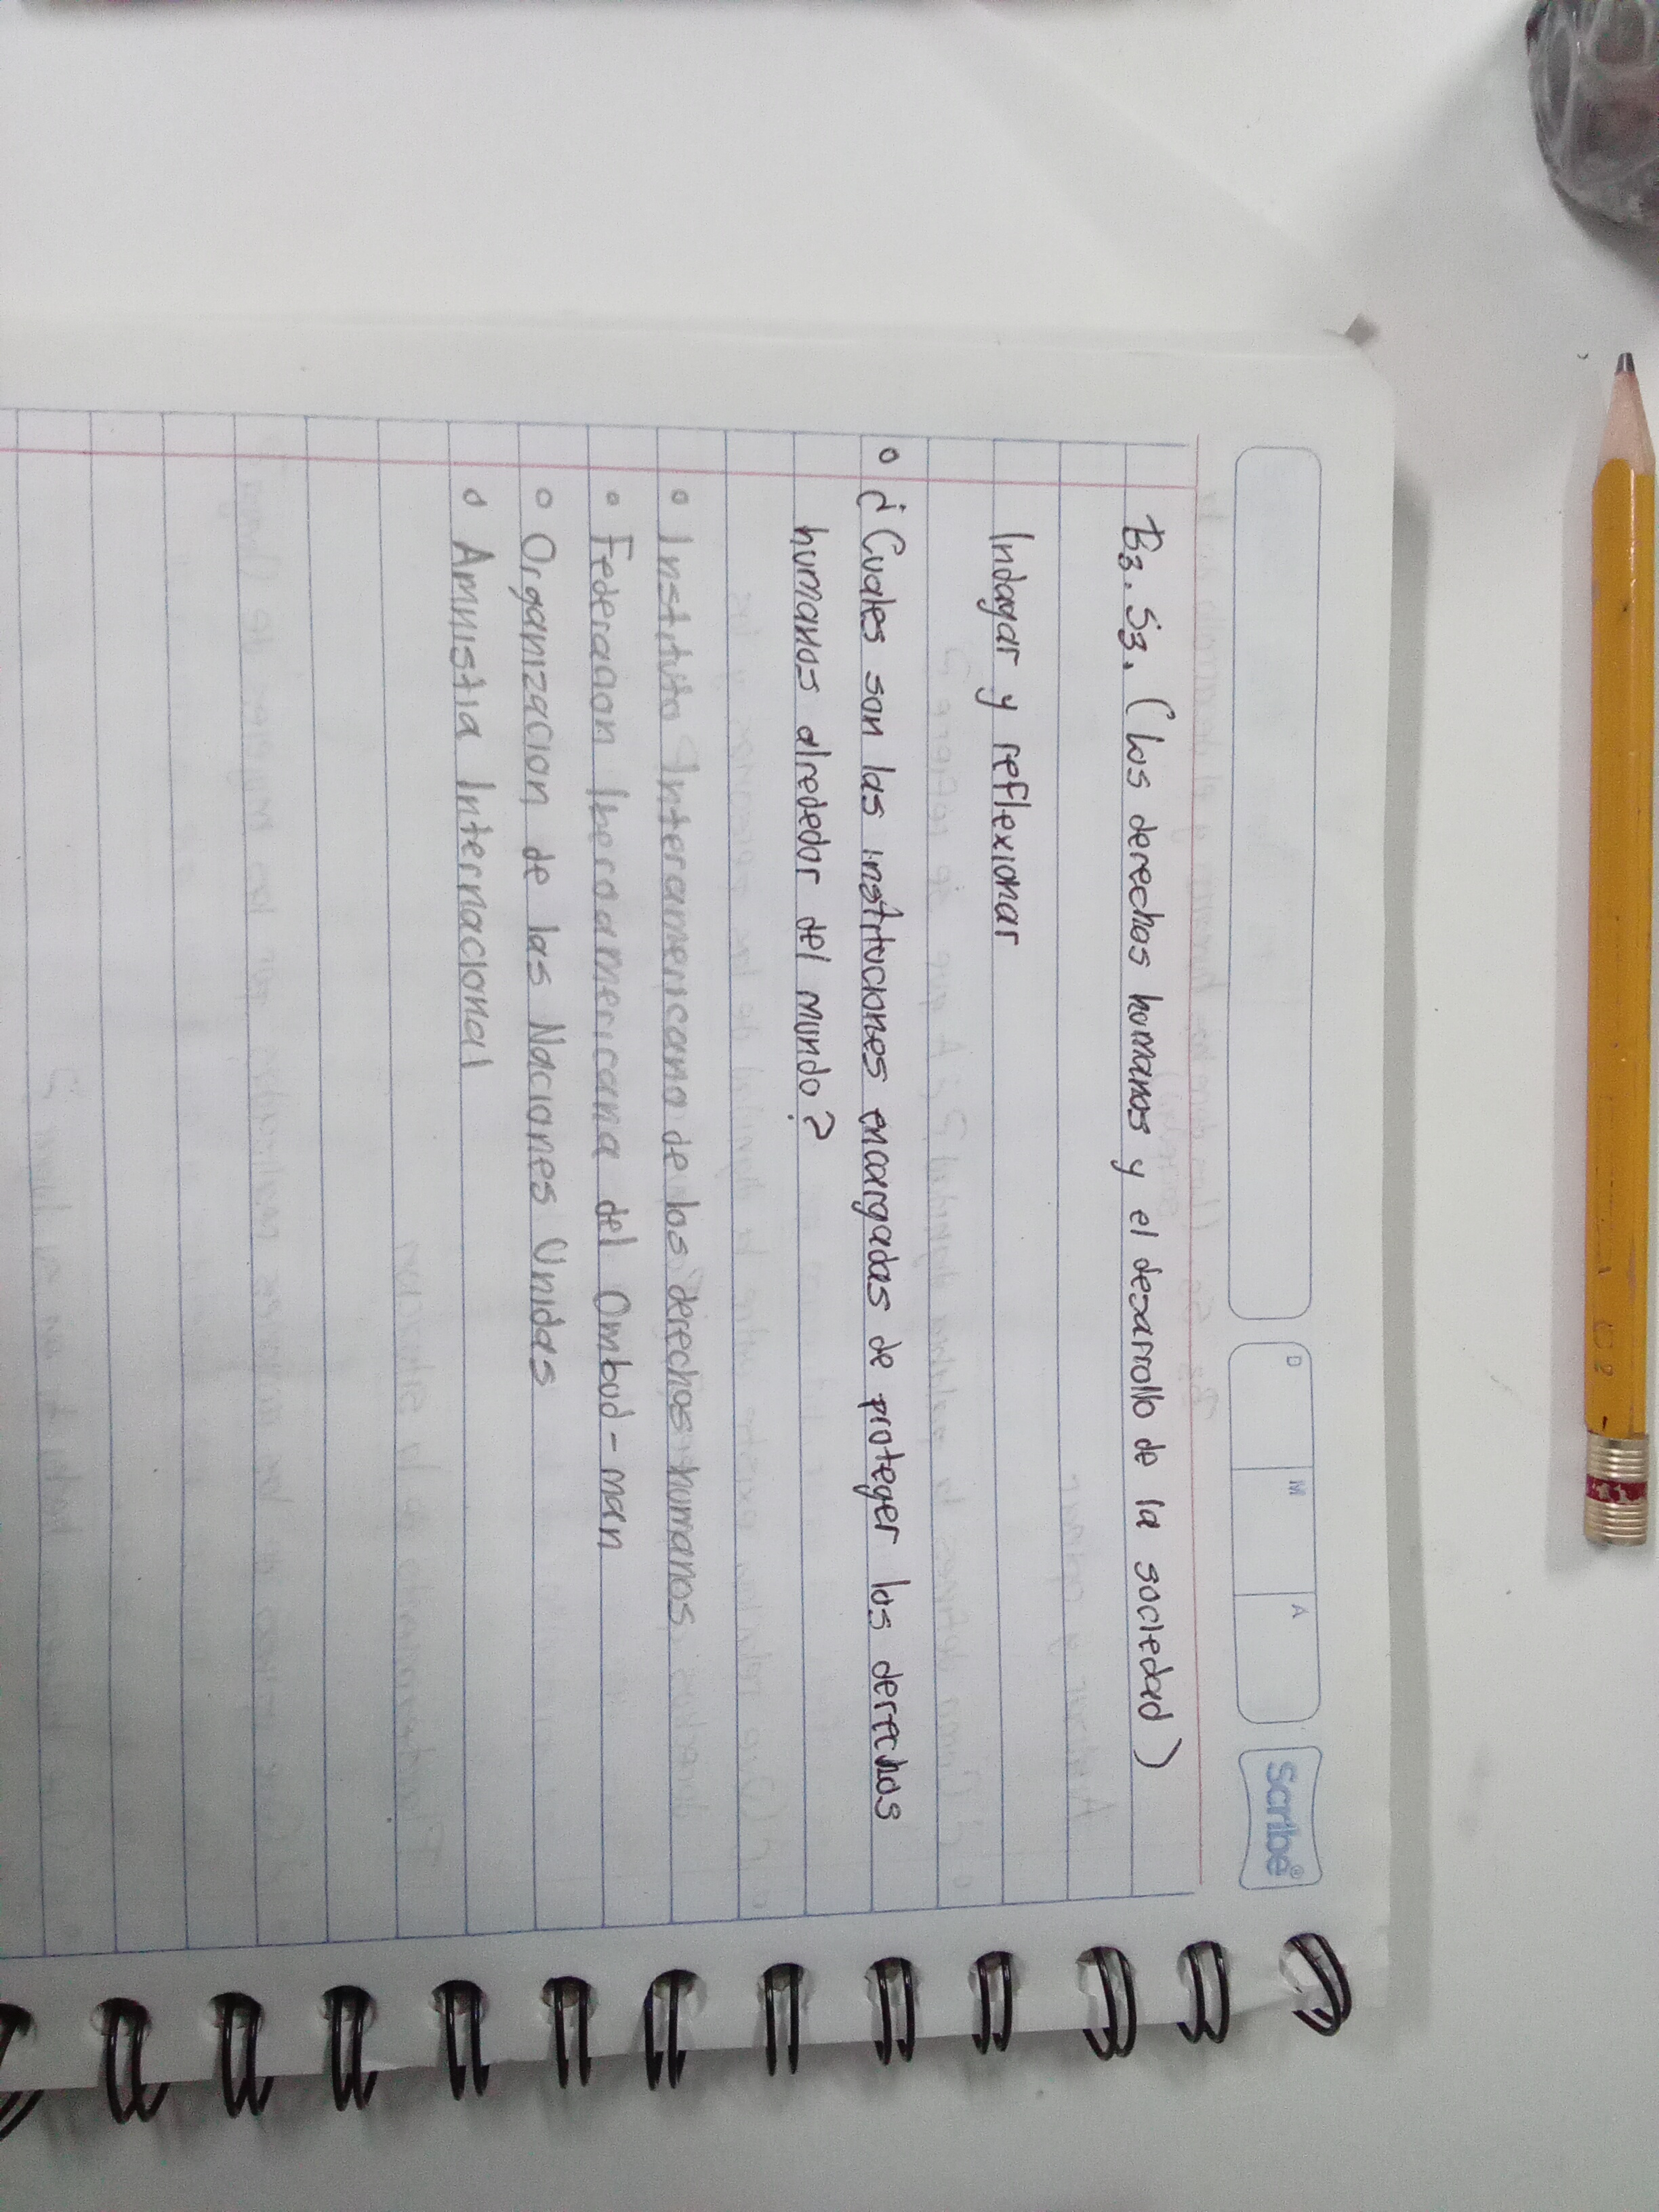 D M A Scribe®
B3. S3. (Los derechos humanos y el desarrollo de la sociedad)
Indagar y reflexionar
¿Cuales son las instituciones encargadas de proteger los derechos
humanos alrededor del mundo?
Instituto Interamericano de los derechos humanos
Federacion Iberoamericana del Ombud-man
Organizacion de las Naciones Unidas
Amnistia Internacional